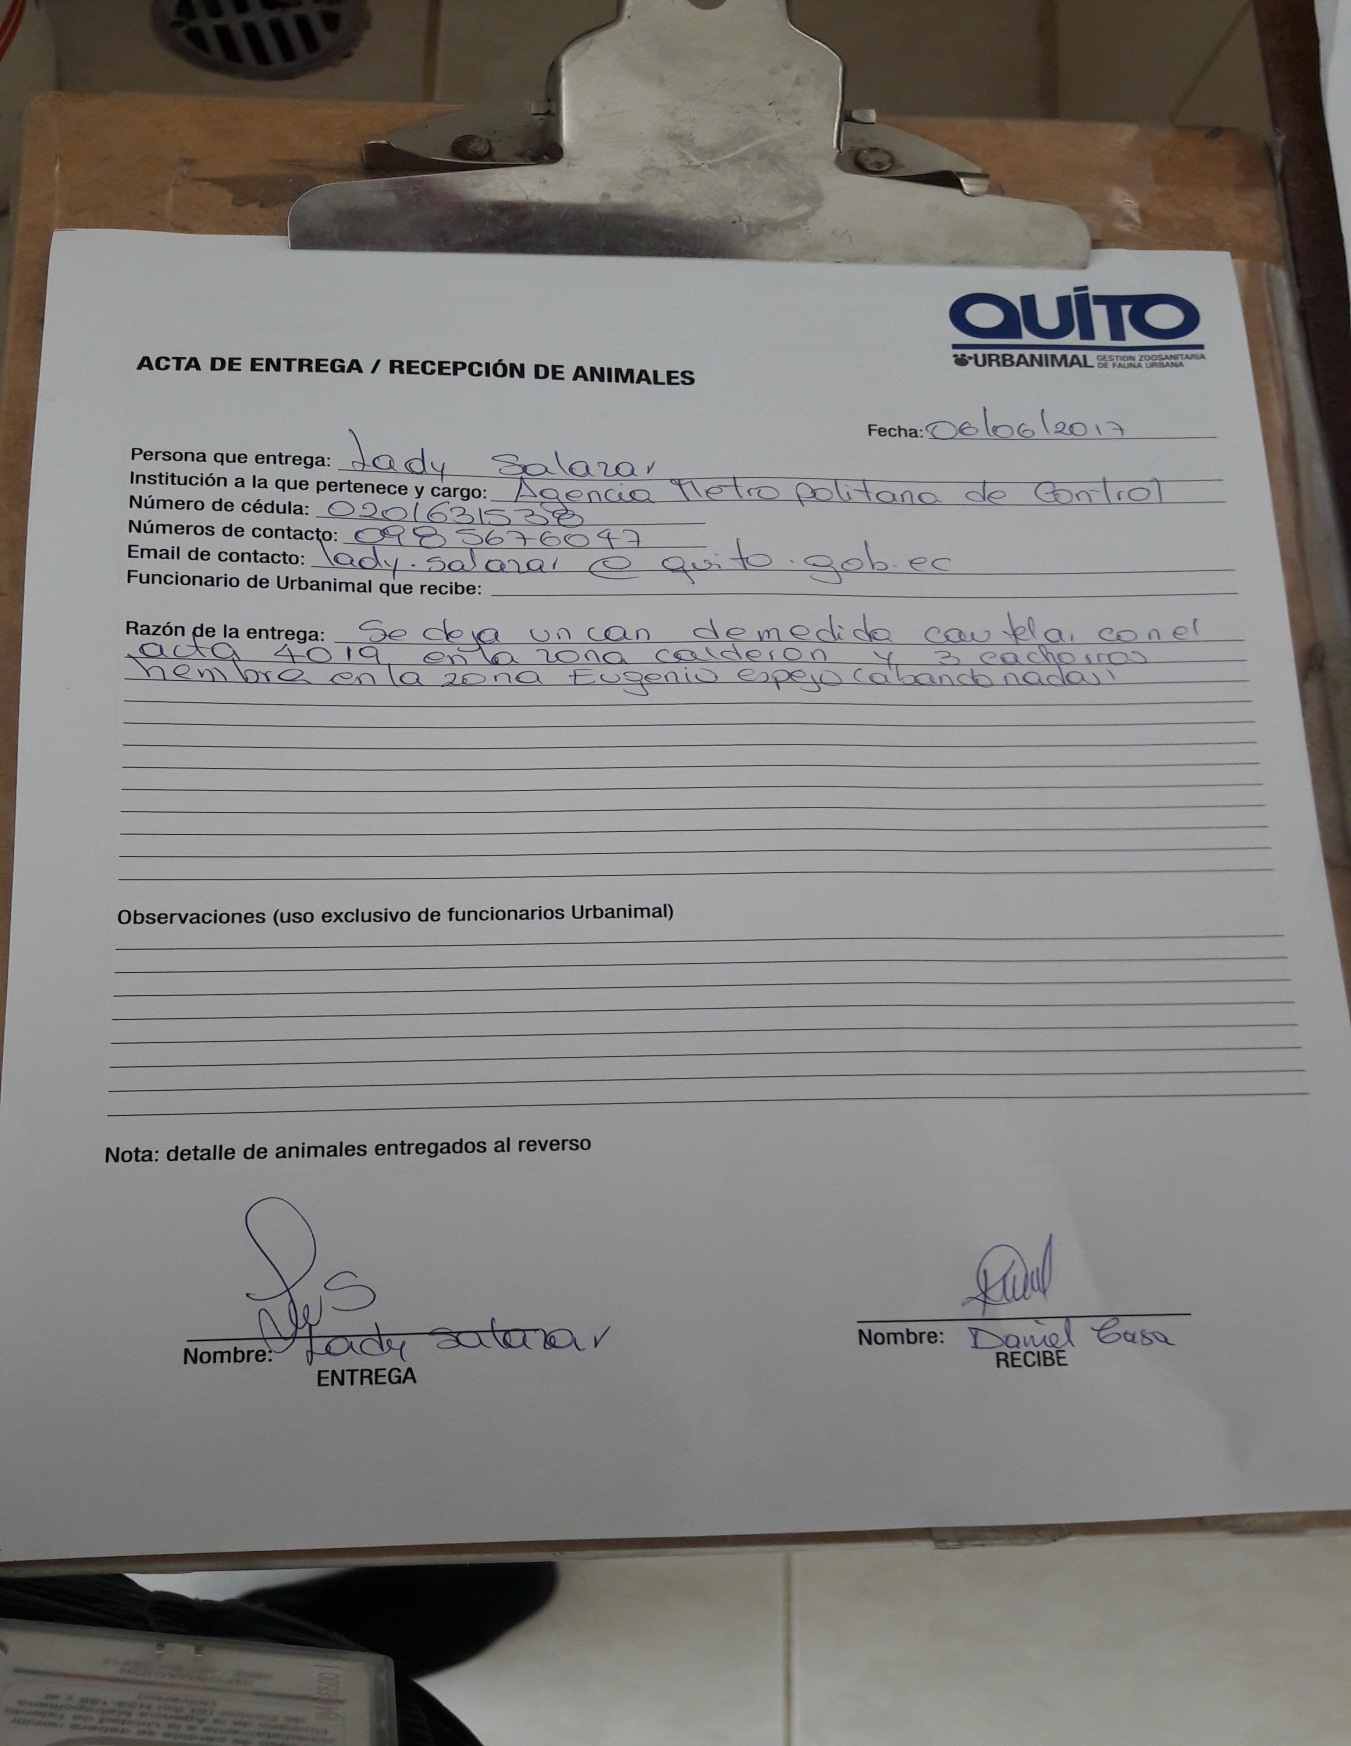 QUITO
URBANIMAL GESTION ZOOSANITARIA
DE FAUNA URBANA
ACTA DE ENTREGA / RECEPCIÓN DE ANIMALES
Fecha: 06/06/2017
Persona que entrega: Lady Salazar
Institución a la que pertenece y cargo: Agencia Metropolitana de Control
Número de cédula: 0201631538
Números de contacto: 0985676047
Email de contacto: lady.salazar@quito.gob.ec
Funcionario de Urbanimal que recibe:
Razón de la entrega: Se deja un can de medida cautelar con el
acta 4019 en la zona calderon y 3 cachorros
hembra en la zona Eugenio espejo (abandonadas)
Observaciones (uso exclusivo de funcionarios Urbanimal)
Nota: detalle de animales entregados al reverso
Nombre: Lady Salazar
ENTREGA
Nombre: Daniel Casa
RECIBE